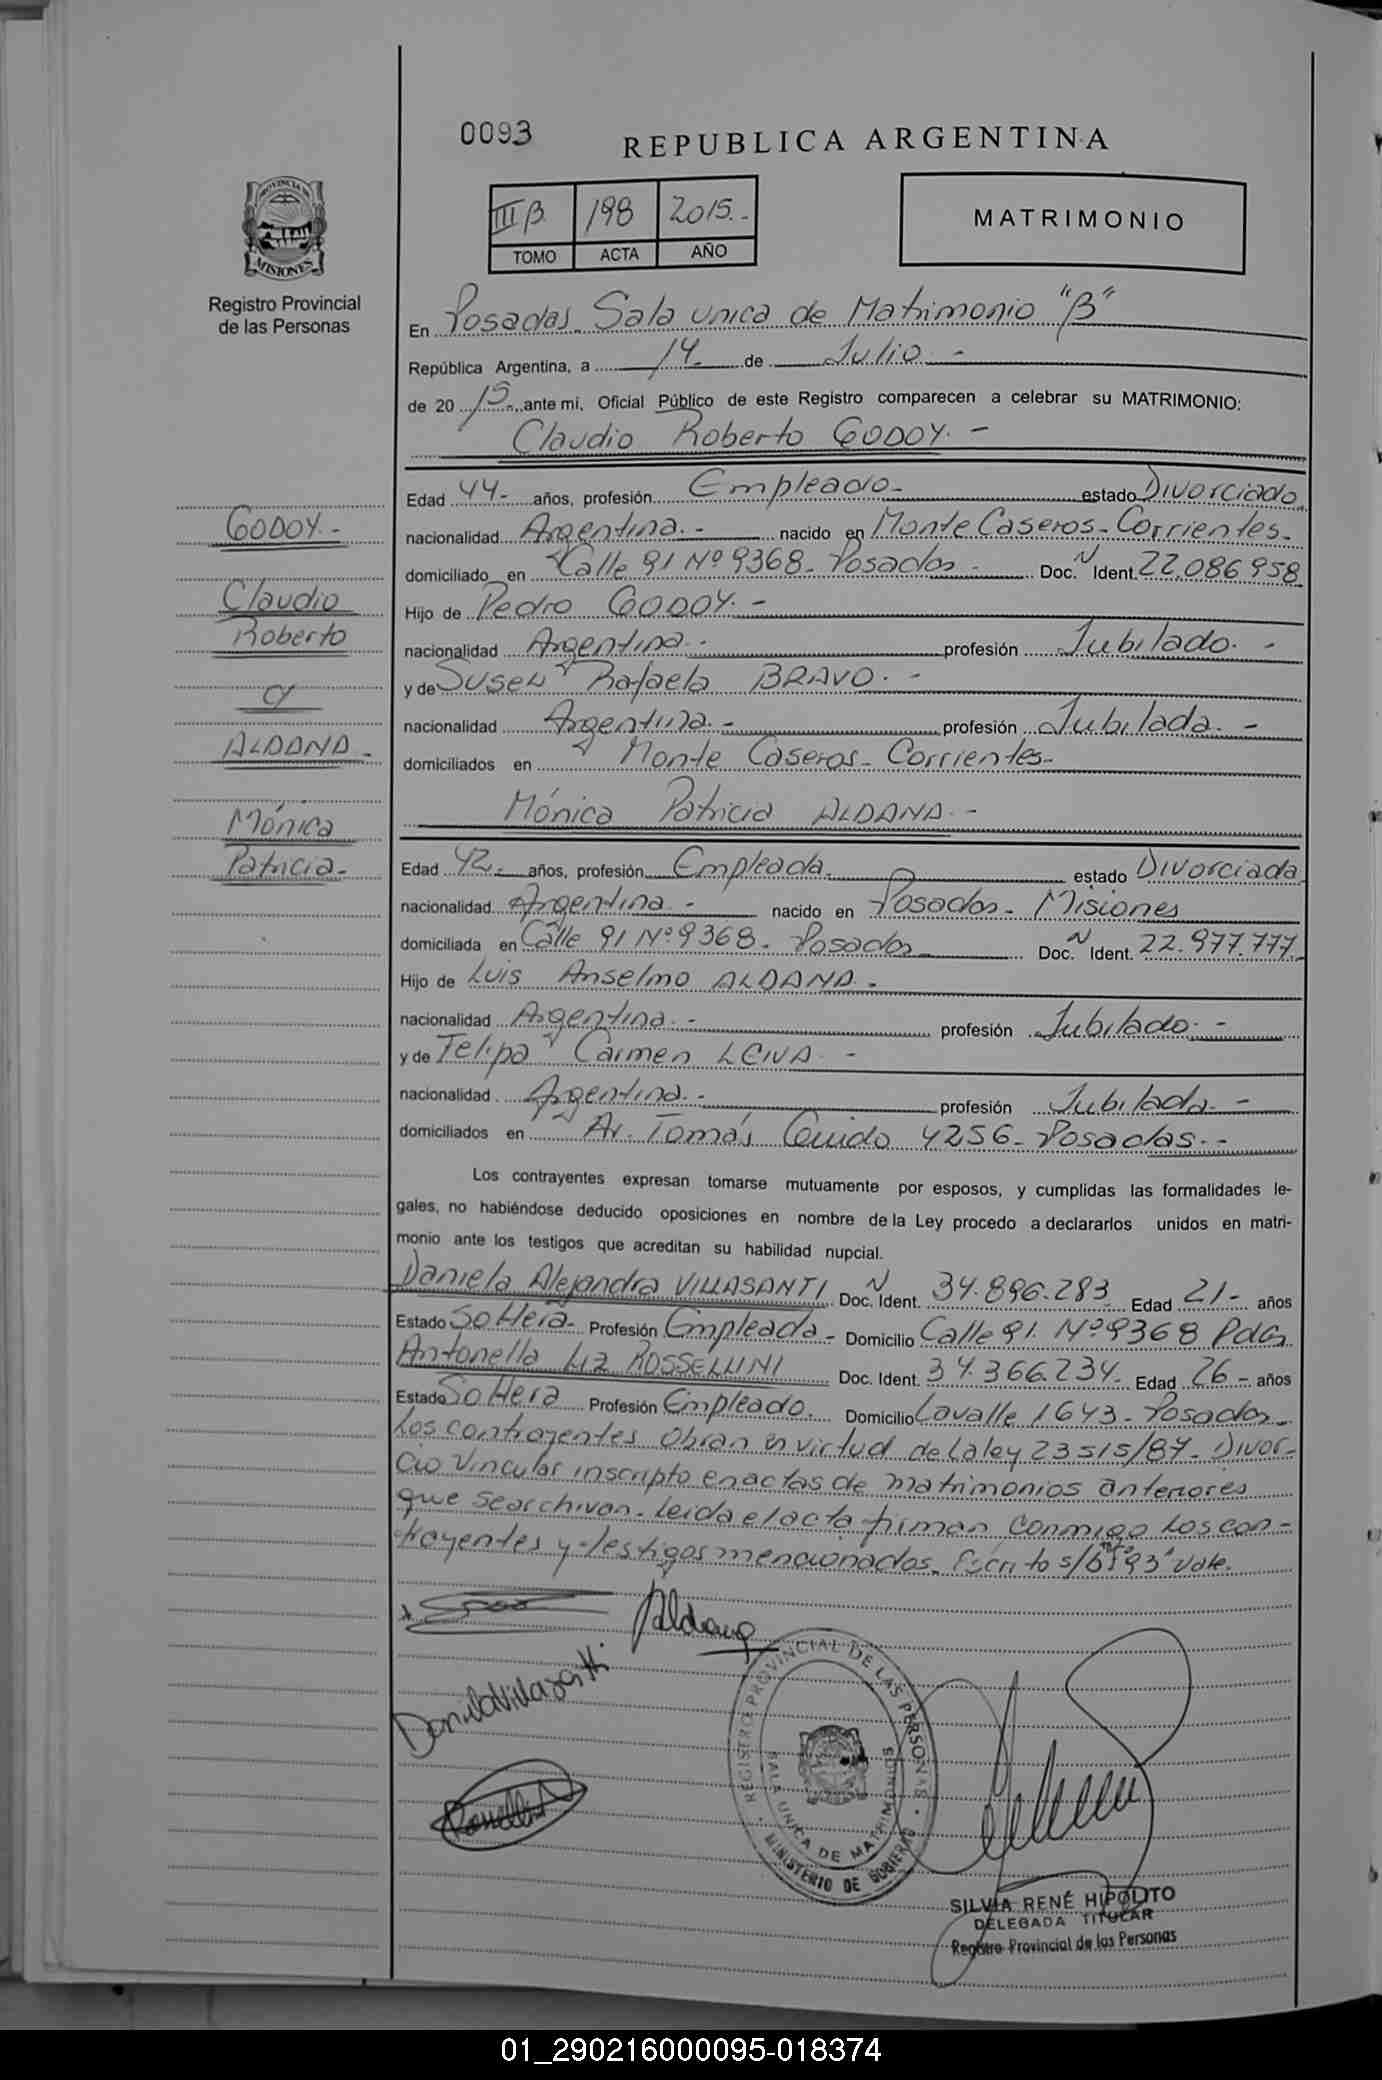 0093
REPUBLICA ARGENTINA
III B 198 2015.-
TOMO ACTA AÑO
MATRIMONIO
PROVINCIA DE
MISIONES
Registro Provincial
de las Personas
En Posadas. Sala unica de Matrimonio "B"
República Argentina, a 14- de Julio.-
de 20 15.- ante mi, Oficial Público de este Registro comparecen a celebrar su MATRIMONIO:
Claudio Roberto GODOY.-
Edad 44- años, profesión Empleado- estado Divorciado
nacionalidad Argentina.- nacido en Monte Caseros-Corrientes-
domiciliado en Calle 91 Nº 9368- Posadas- Doc. N Ident. 22.086.958
Hijo de Pedro GODOY.-
nacionalidad Argentina.- profesión Jubilado.-
y de Susen Rafaela BRAVO.-
nacionalidad Argentina.- profesión Jubilada.-
domiciliados en Monte Caseros- Corrientes-
Mónica Patricia ALDANA.-
GODOY.-
Claudio
Roberto
c/
ALDANA-
Mónica
Patricia-
Edad 42- años, profesión Empleada. estado Divorciada
nacionalidad Argentina.- nacido en Posadas- Misiones
domiciliada en Calle 91 Nº 9368- Posadas- Doc. N Ident. 22.977.777-
Hijo de Luis Anselmo ALDANA.-
nacionalidad Argentina.- profesión Jubilado.-
y de Felipa Carmen LEIVA.-
nacionalidad Argentina.- profesión Jubilada.-
domiciliados en Av. Tomás Guido 4256- Posadas.-
Los contrayentes expresan tomarse mutuamente por esposos, y cumplidas las formalidades le-
gales, no habiéndose deducido oposiciones en nombre de la Ley procedo a declararlos unidos en matri-
monio ante los testigos que acreditan su habilidad nupcial.
Daniela Alejandra VILLASANTI Doc. N Ident. 34.896.283 Edad 21- años
Estado Soltera- Profesión Empleada- Domicilio Calle 91. Nº 9368 Pdas
Antonella Liz ROSSELLINI Doc. Ident. 34.366.234- Edad 26- años
Estado Soltera Profesión Empleado. Domicilio Lavalle 1643- Posadas-
Los contrayentes obran en virtud de la ley 23515/87- Divor-
cio Vincular inscripto en actas de matrimonios anteriores
que se archivan. Leida el acta firman conmigo los con-
trayentes y testigos mencionados. Escrito s/b "93" vale.
Aldana
Daniela Villasanti
REGISTRO PROVINCIAL DE LAS PERSONAS
SALA UNICA DE MATRIMONIOS
MINISTERIO DE GOBIERNO
SILVIA RENÉ HIPÓLITO
DELEGADA TITULAR
Registro Provincial de las Personas
01_290216000095-018374